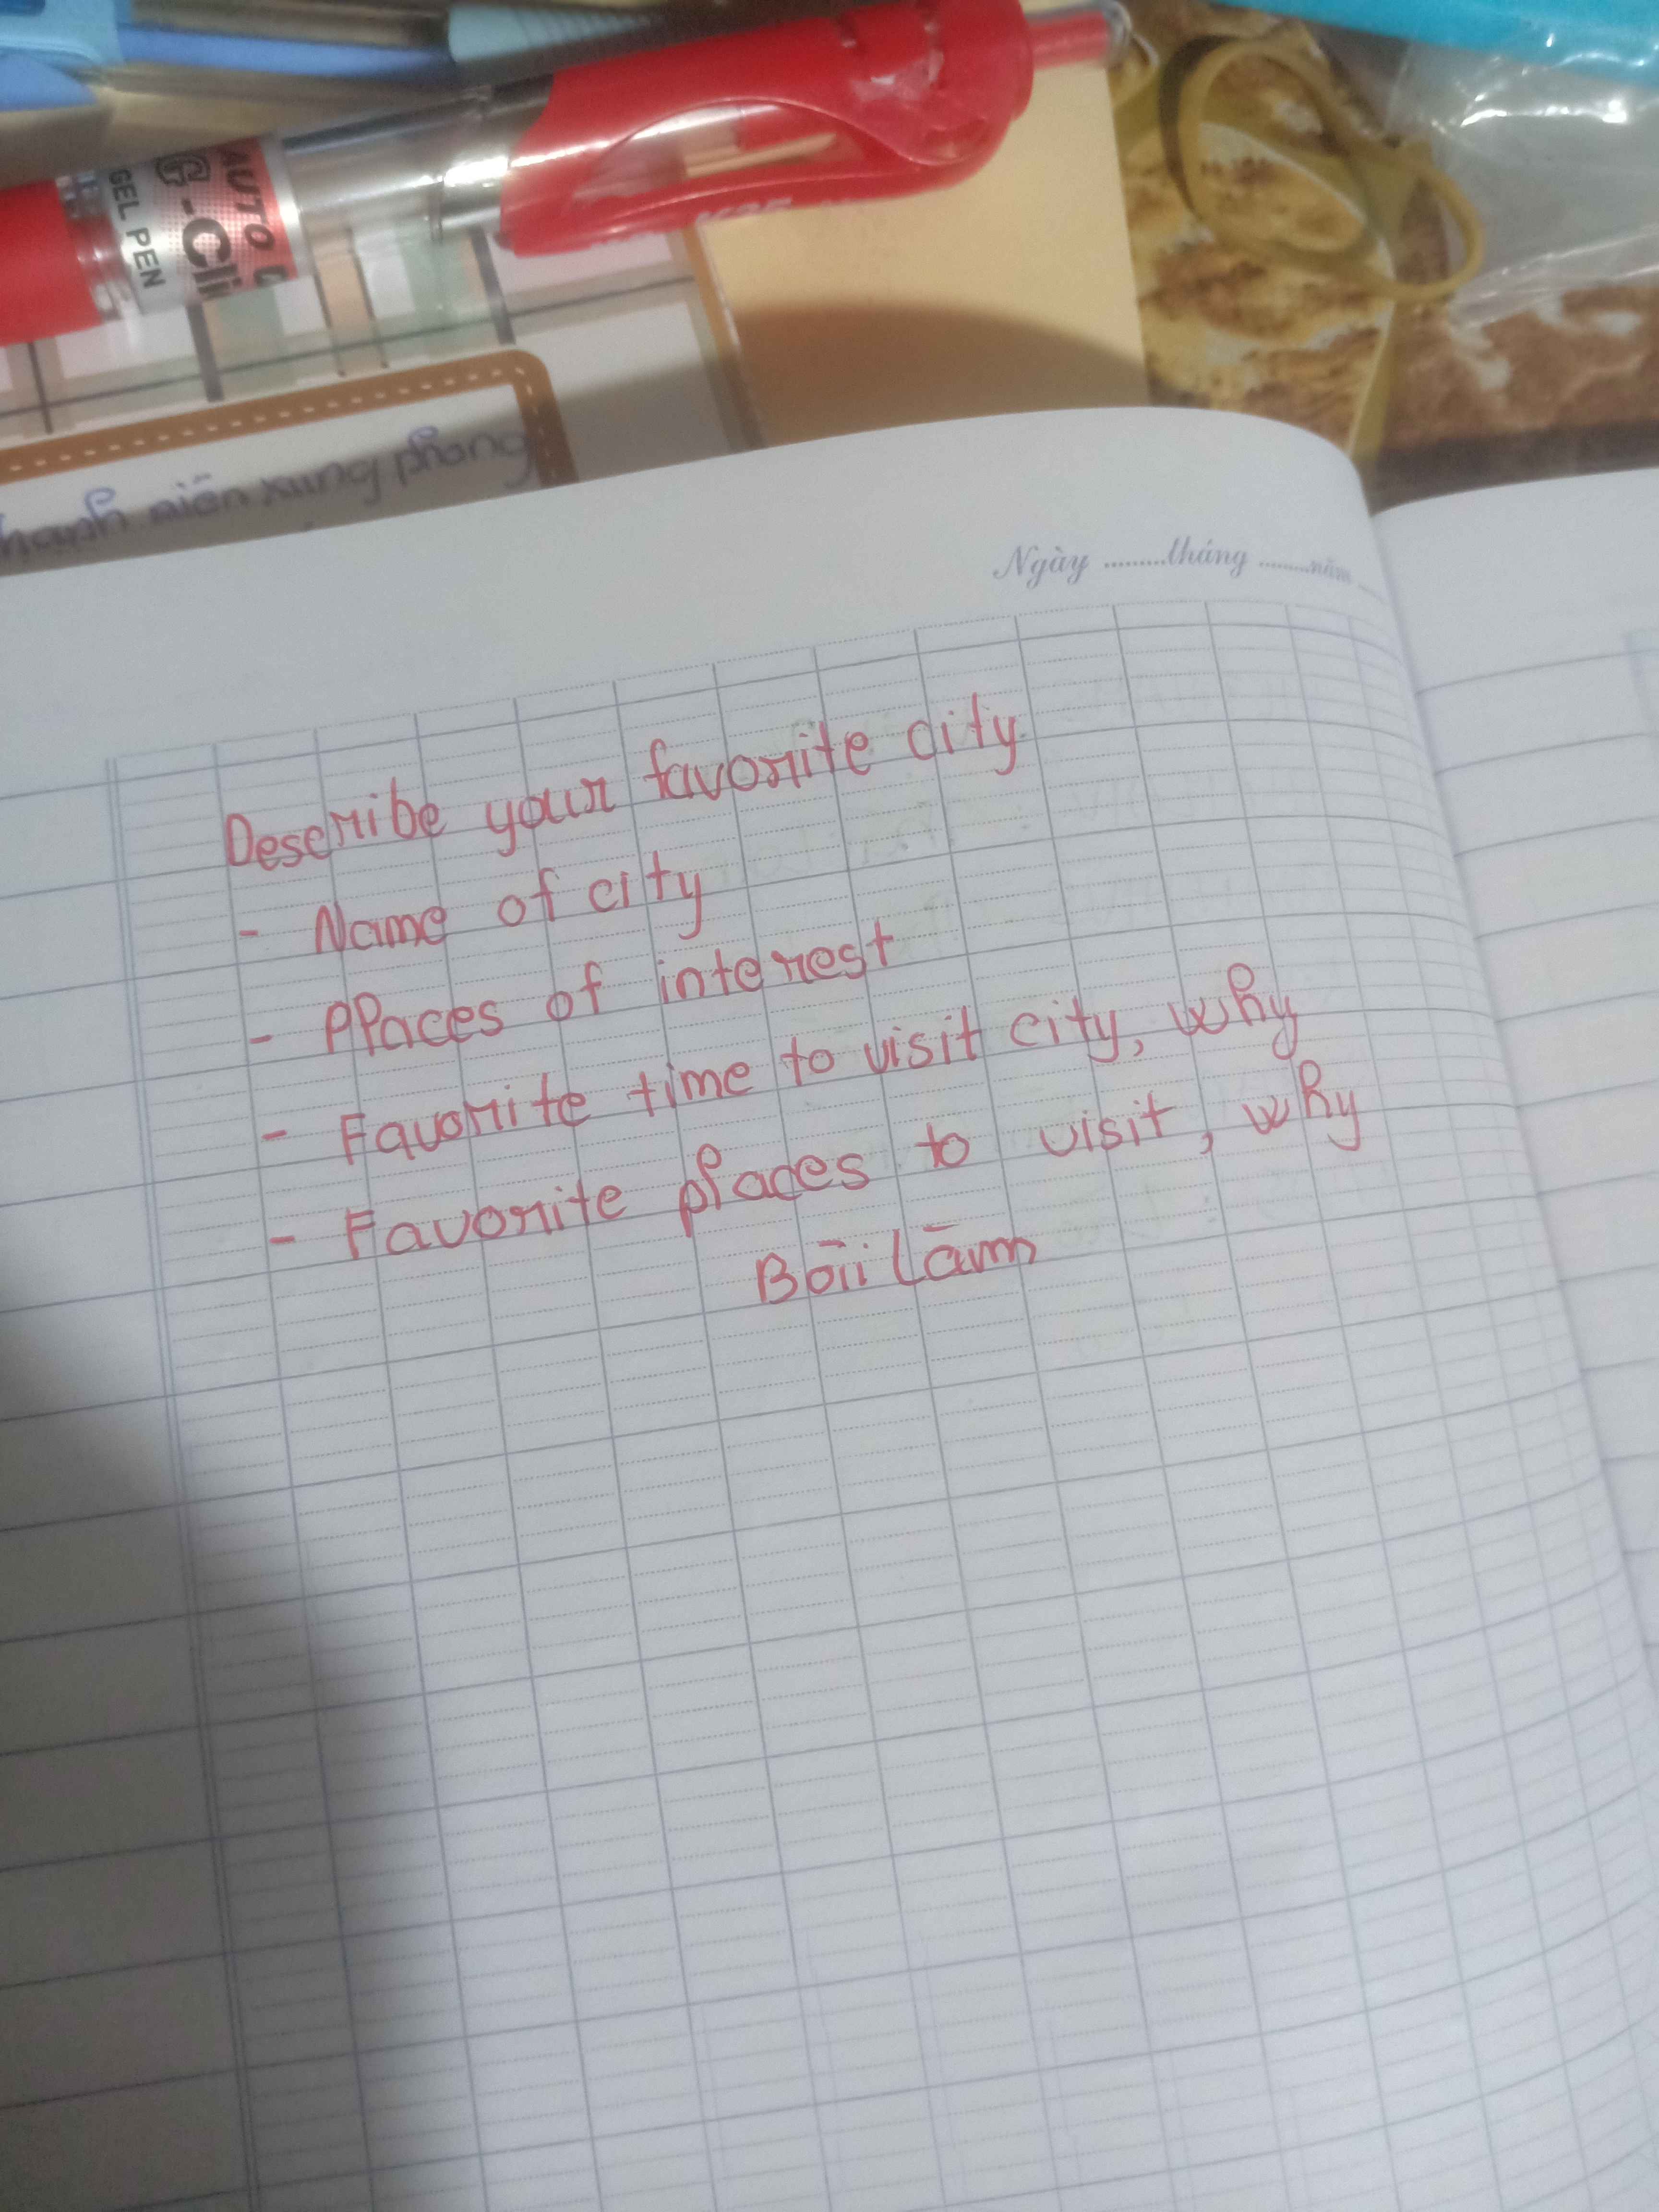 AUTO
G-Cli
GEL PEN
thanh niên xung phong
Ngày ......... tháng ......... năm
Describe your favorite city
- Name of city
- Places of interest
- Favorite time to visit city, why
- Favorite places to visit, why
Bōii Lām